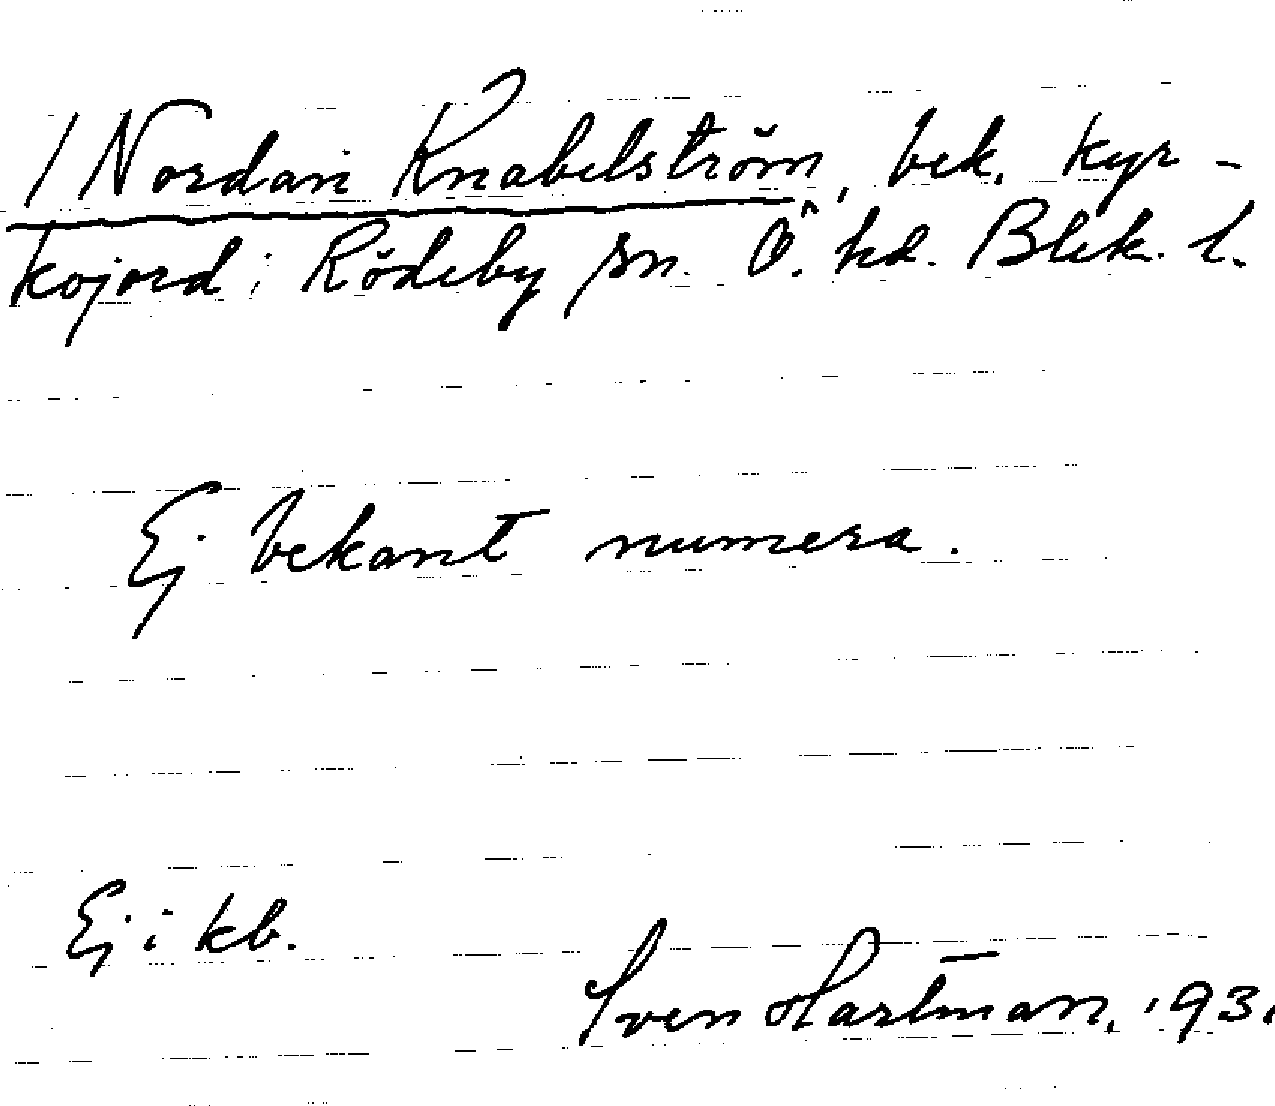 / Nordan Knabelström, bek. kyr-
kojord i Rödeby sn. Ö. hd. Blek. l.
Ej bekant numera.
Ej i kb.
Sven Hartman, 1931